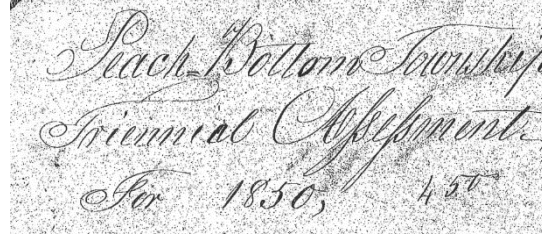 Peach=Bottom Township
Triennial Assessment.
For 1850,